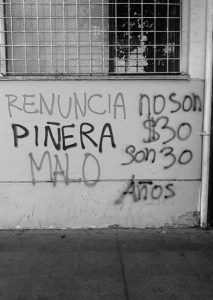 RENUNCIA
PIÑERA
MALO
no son
$30
son 30
Años